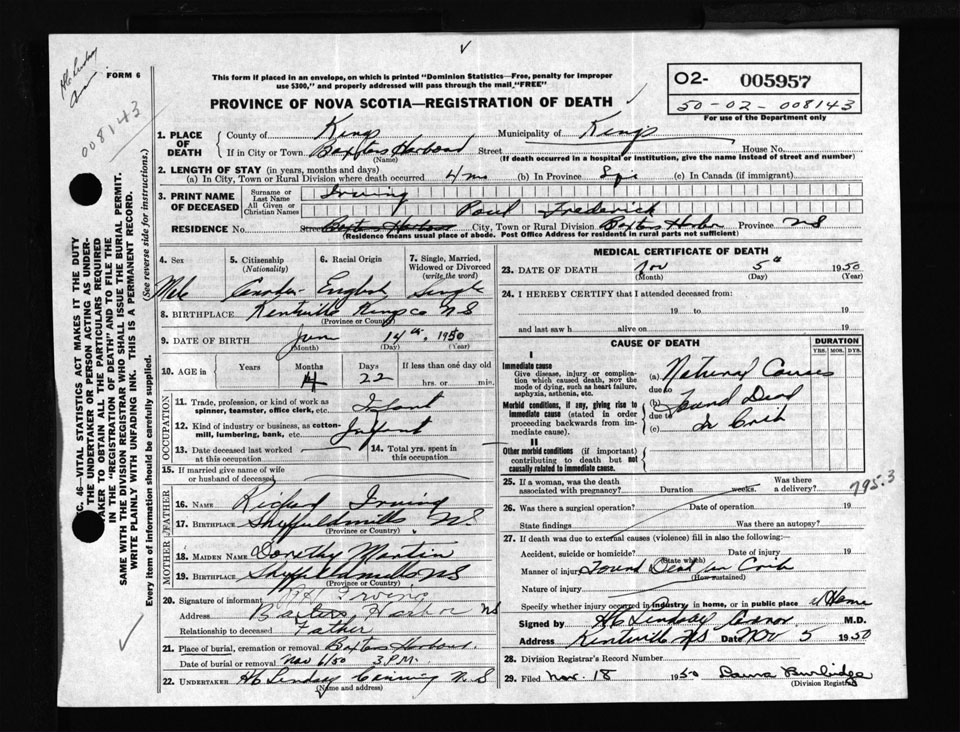 H C Lindsay
008143
FORM 6
This form if placed in an envelope, on which is printed "Dominion Statistics—Free, penalty for improper
use $300," and properly addressed will pass through the mail, "FREE"
PROVINCE OF NOVA SCOTIA—REGISTRATION OF DEATH
O2- 005957
50-02-008143
For use of the Department only
1. PLACE OF DEATH
County of Kings Municipality of Kings
If in City or Town Baxters Harbour Street House No.
(Name) (If death occurred in a hospital or institution, give the name instead of street and number)
2. LENGTH OF STAY (in years, months and days)
(a) In City, Town or Rural Division where death occurred 4 ms (b) In Province (c) In Canada (if immigrant)
3. PRINT NAME OF DECEASED
Surname or Last Name Irving
All Given or Christian Names Paul Frederick
RESIDENCE No. Street Baxters Harbour City, Town or Rural Division Baxters Harbor Province NS
(Residence means usual place of abode. Post Office Address for residents in rural parts not sufficient)
SEC. 46—VITAL STATISTICS ACT MAKES IT THE DUTY
OF THE UNDERTAKER OR PERSON ACTING AS UNDER-
TAKER TO OBTAIN ALL THE PARTICULARS REQUIRED
IN THE "REGISTRATION OF DEATH" AND TO FILE THE
SAME WITH THE DIVISION REGISTRAR WHO SHALL ISSUE THE BURIAL PERMIT.
WRITE PLAINLY WITH UNFADING INK. THIS IS A PERMANENT RECORD.
Every item of information should be carefully supplied. (See reverse side for instructions.)
4. Sex Male
5. Citizenship (Nationality) Canadian
6. Racial Origin English
7. Single, Married, Widowed or Divorced (write the word) Single
8. BIRTHPLACE Kentville Kings co NS
(Province or Country)
9. DATE OF BIRTH June 14th, 1950
(Month) (Day) (Year)
10. AGE in Years Months 4 Days 22 If less than one day old
hrs. or min.
OCCUPATION
11. Trade, profession, or kind of work as
spinner, teamster, office clerk, etc. Infant
12. Kind of industry or business, as cotton-
mill, lumbering, bank, etc. Infant
13. Date deceased last worked at this occupation
14. Total yrs. spent in this occupation
15. If married give name of wife
or husband of deceased
FATHER
16. NAME Richard Irving
17. BIRTHPLACE Sheffield mills NS.
(Province or Country)
MOTHER
18. MAIDEN NAME Dorothy Martin
19. BIRTHPLACE Sheffield mills NS
(Province or Country)
20. Signature of informant Irving
Address Baxters Harbor NS
Relationship to deceased Father
21. Place of burial, cremation or removal Baxters Harbour.
Date of burial or removal Nov 6/50 3 P.M.
22. UNDERTAKER H C Lindsay Canning N.S
(Name and address)
MEDICAL CERTIFICATE OF DEATH
23. DATE OF DEATH Nov 5th 1950
(Month) (Day) (Year)
24. I HEREBY CERTIFY that I attended deceased from:
19 to 19
and last saw h alive on 19
CAUSE OF DEATH
DURATION
YRS. MOS. DYS.
I
Immediate cause
Give disease, injury or complication which caused death, NOT the mode of dying, such as heart failure, asphyxia, asthenia, etc.
(a) Natural Causes
due to
Morbid conditions, if any, giving rise to immediate cause (stated in order proceeding backwards from immediate cause).
(b) Found Dead
due to
(c) In Crib
II
Other morbid conditions (if important) contributing to death but not causally related to immediate cause.
25. If a woman, was the death associated with pregnancy? Duration weeks. Was there a delivery?
795.3
26. Was there a surgical operation? Date of operation 19
State findings Was there an autopsy?
27. If death was due to external causes (violence) fill in also the following:
Accident, suicide or homicide? Date of injury 19
(State which)
Manner of injury Found Dead in Crib
(How sustained)
Nature of injury
Specify whether injury occured in industry, in home, or in public place Home
Signed by M.D.
Address Kentville NS Date Nov 5 1950
28. Division Registrar's Record Number
29. Filed Nov. 18 1950 Burbidge
(Division Registrar)